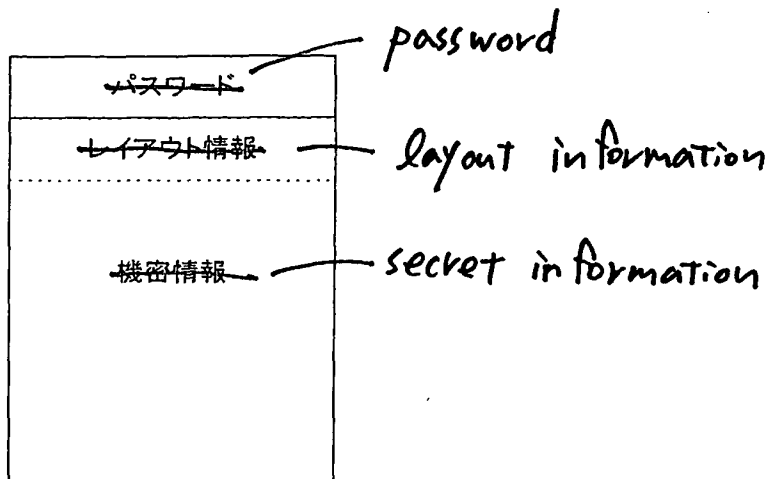 password
パスワード
レイアウト情報
layout information
機密情報
secret information